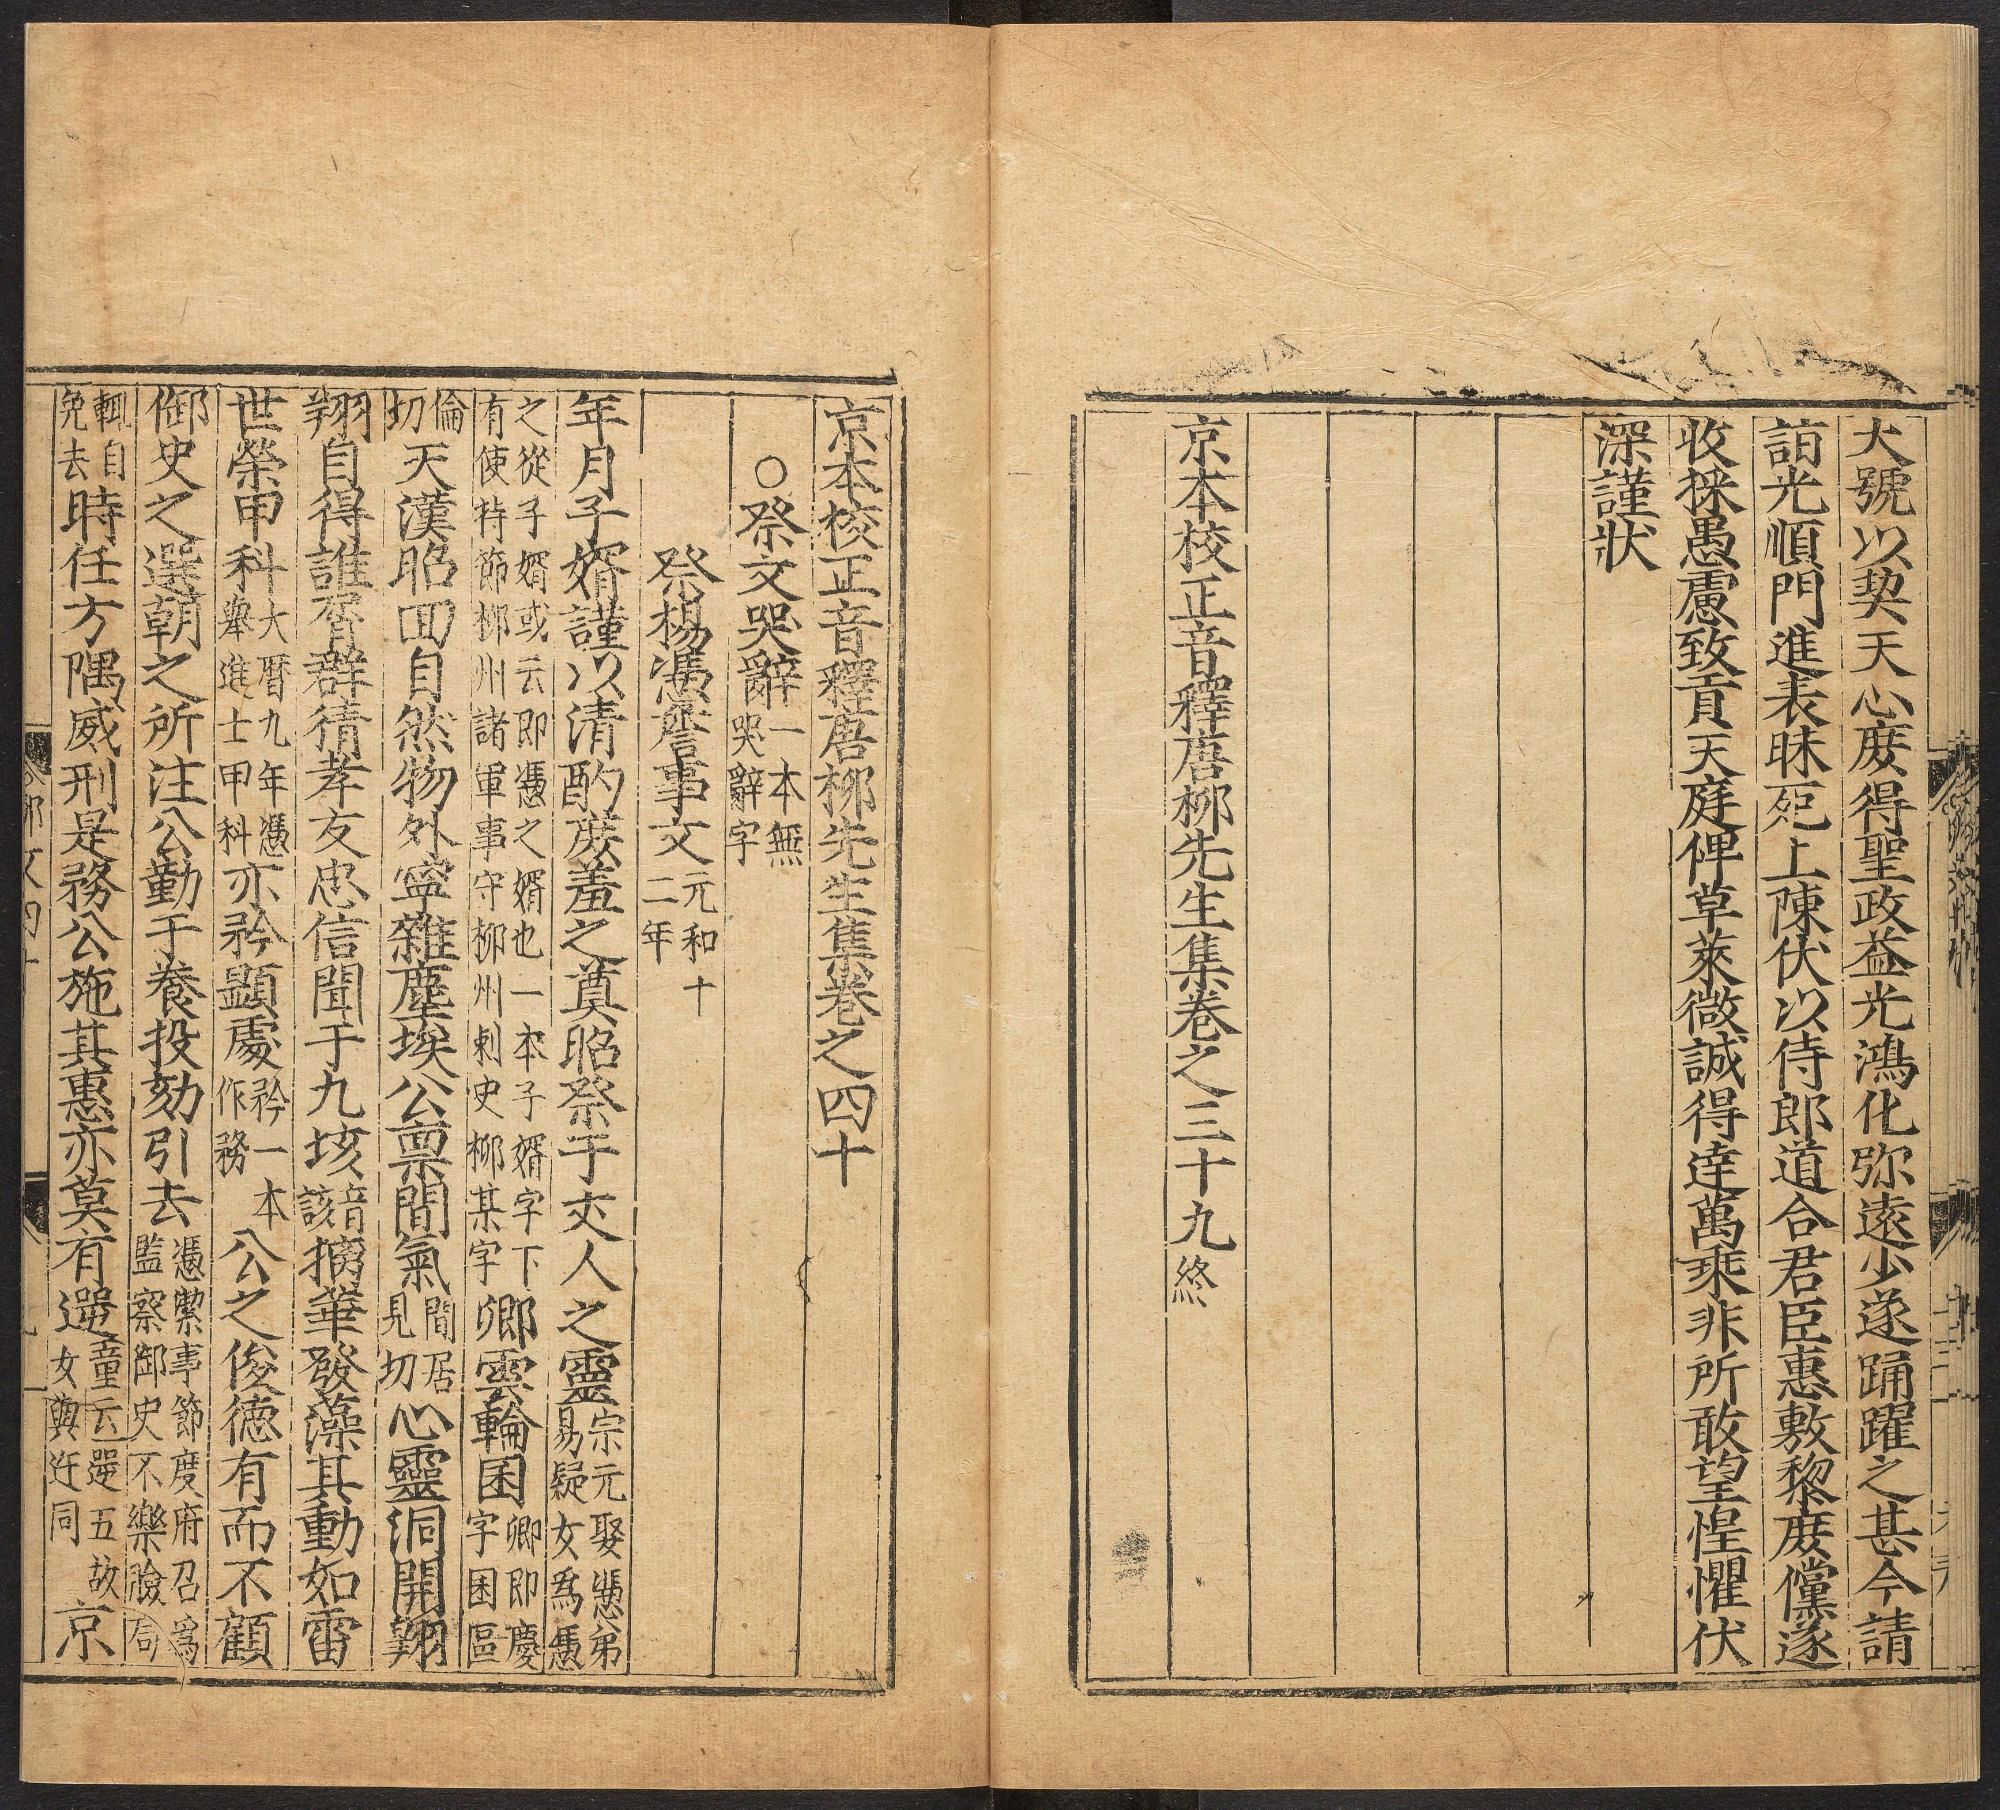 大號以契天心庻得聖政益光鴻化弥遠少遂踊躍之甚今請
詣光順門進表昧死上陳伏以侍郎道合君臣惠敷黎庻儻遂
收採愚慮致貢天庭俾草萊微誠得逹萬乘非所敢望惶懼伏
深謹狀
京本校正音釋唐柳先生集卷之三十九終
京本校正音釋唐柳先生集卷之四十
○祭文哭辭一本無哭辭字
祭楊憑詹事文元和十二年
年月子婿謹以清酌庻羞之奠昭祭于丈人之靈宗元娶憑弟易疑女為憑
之從子婿或云即憑之婿也一本子婿字下有使持節柳州諸軍事守柳州刺史柳某字卿雲輪囷卿即慶字囷區
倫切天漢昭回自然物外寧雜塵埃公禀間氣間居見切心靈洞開翔
翔自得誰窘群猜孝友忠信聞于九垓音該摛華發藻其動如雷
世榮甲科大曆九年憑舉進士甲科亦矜顯處矜一本作務公之俊德有而不顧
御史之選朝之所注公勤于養投劾引去憑潔事節度府召為監察御史不樂臉司
輒自免去時任方隅威刑是務公施其惠亦莫有迕童云迕五故女與迕同京